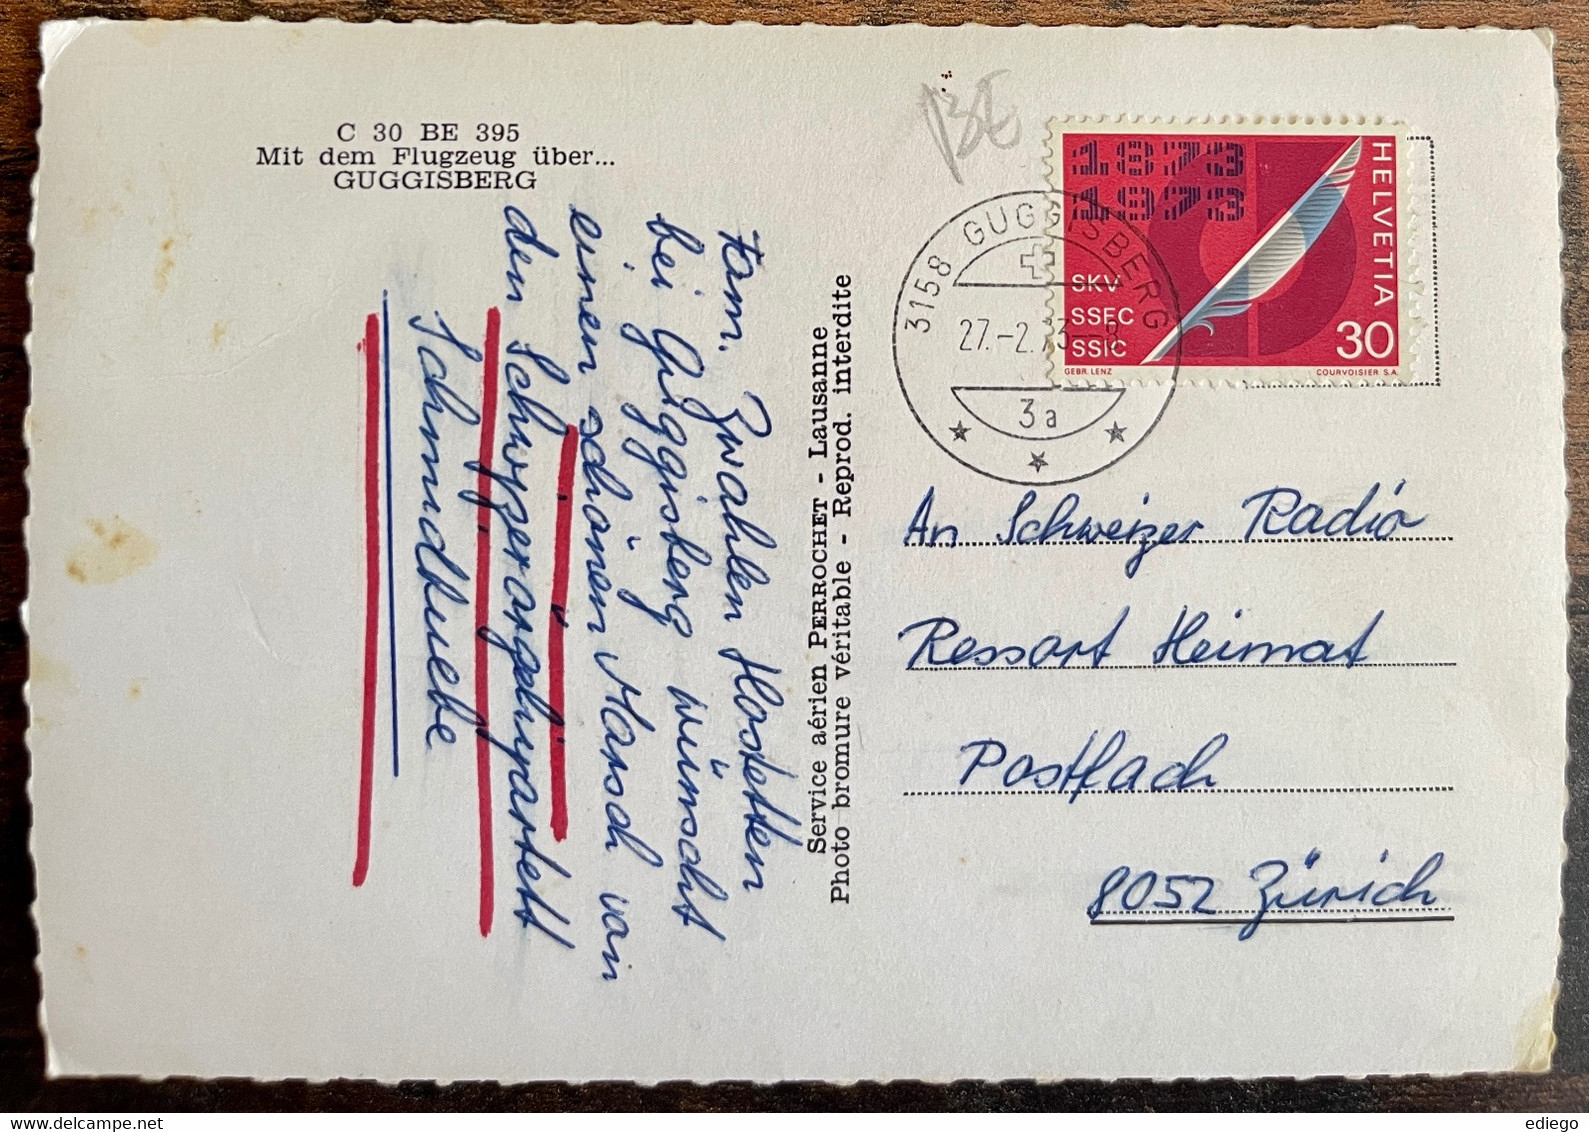 C 30 BE 395
Mit dem Flugzeug über...
GUGGISBERG
Fam. Zwahlen Hostetten
bei Guggisberg wünscht
einen schönen Marsch von
den Schwyzerörgeliquartett
Schmidhuebe
Service aérien PERROCHET - Lausanne
Photo bromure véritable - Reprod. interdite
1873
1973
HELVETIA
SKV
SSEC
SSIC
30
GEBR. LENZ
COURVOISIER S.A.
3158 GUGGISBERG
27.-2.73-8
3a
An Schweizer Radio
Ressort Heimat
Postfach
8052 Zürich
ediego